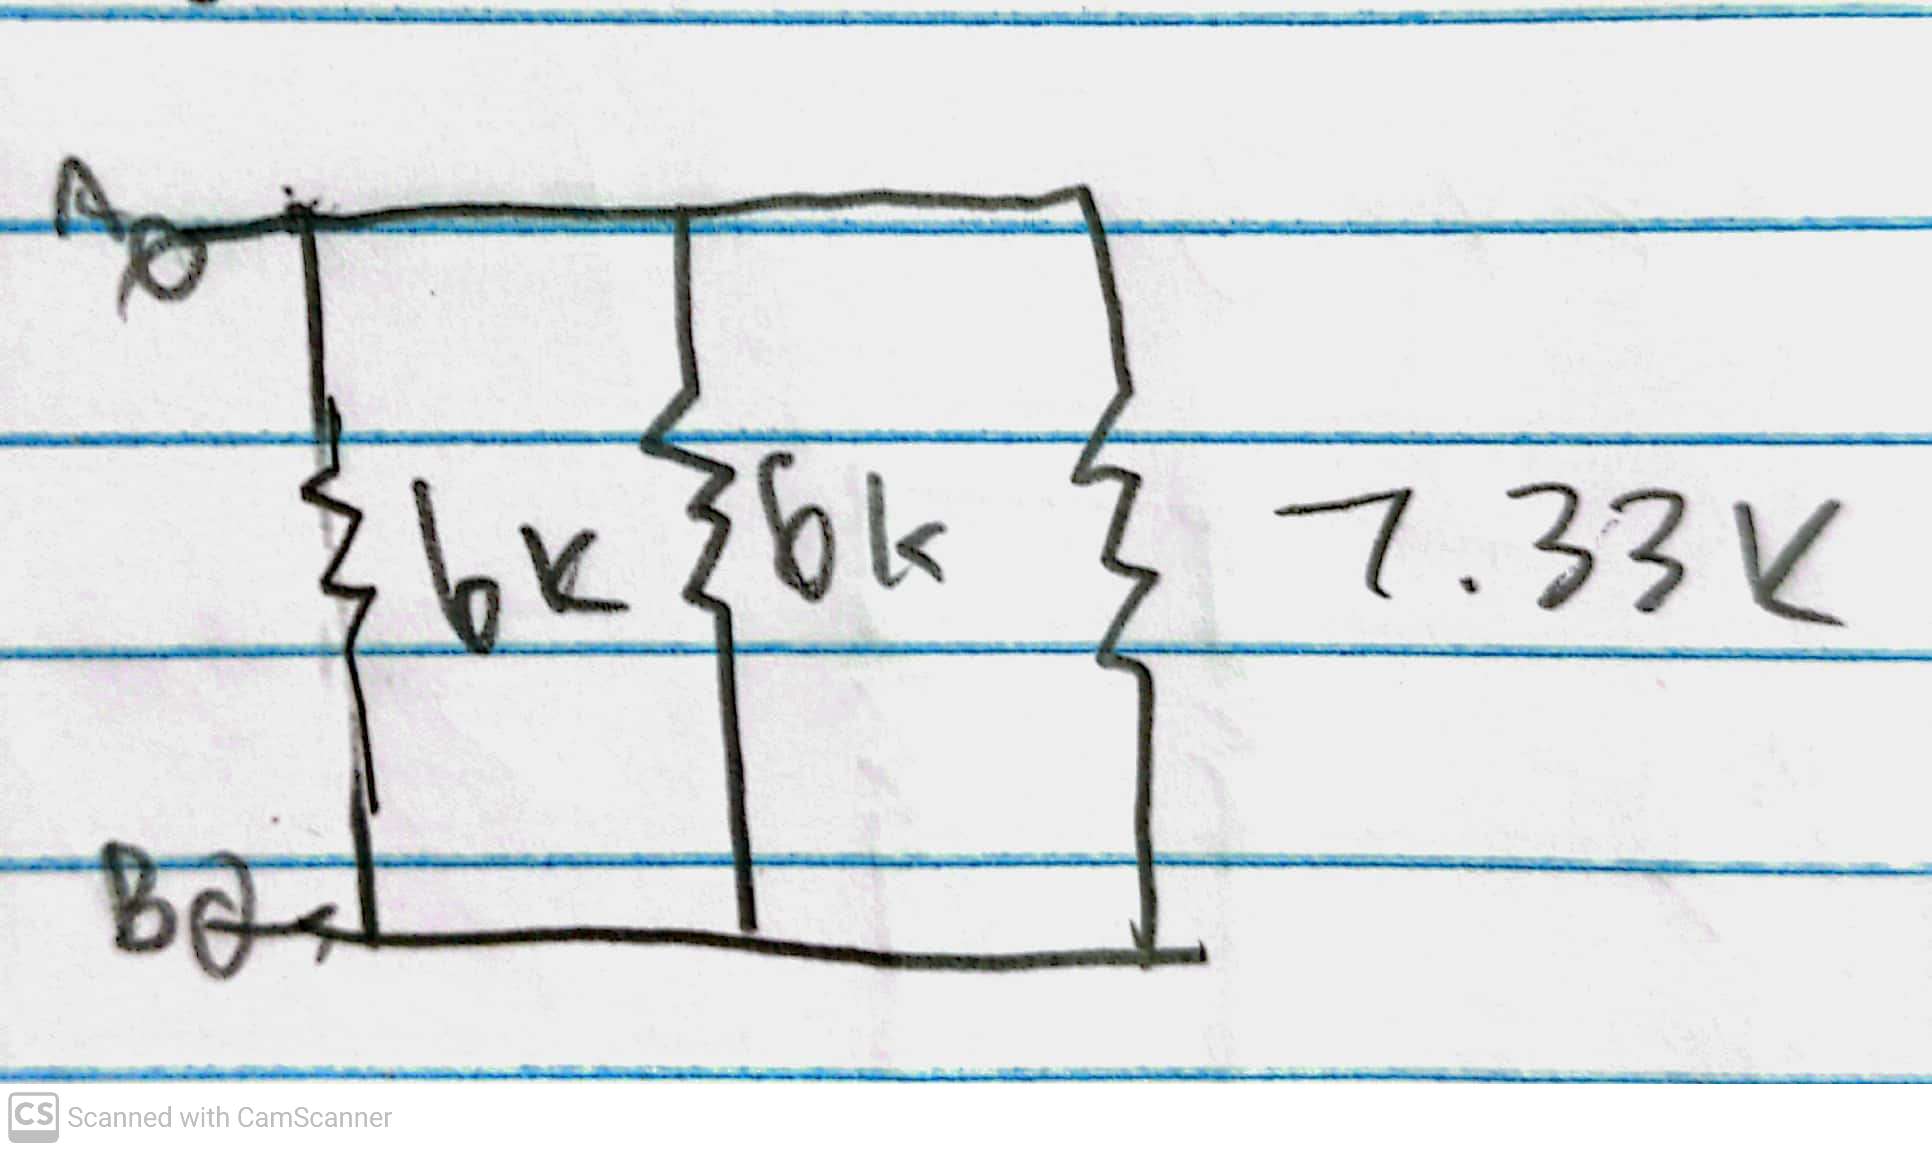 A
6K 6k 7.33K
B
CS Scanned with CamScanner